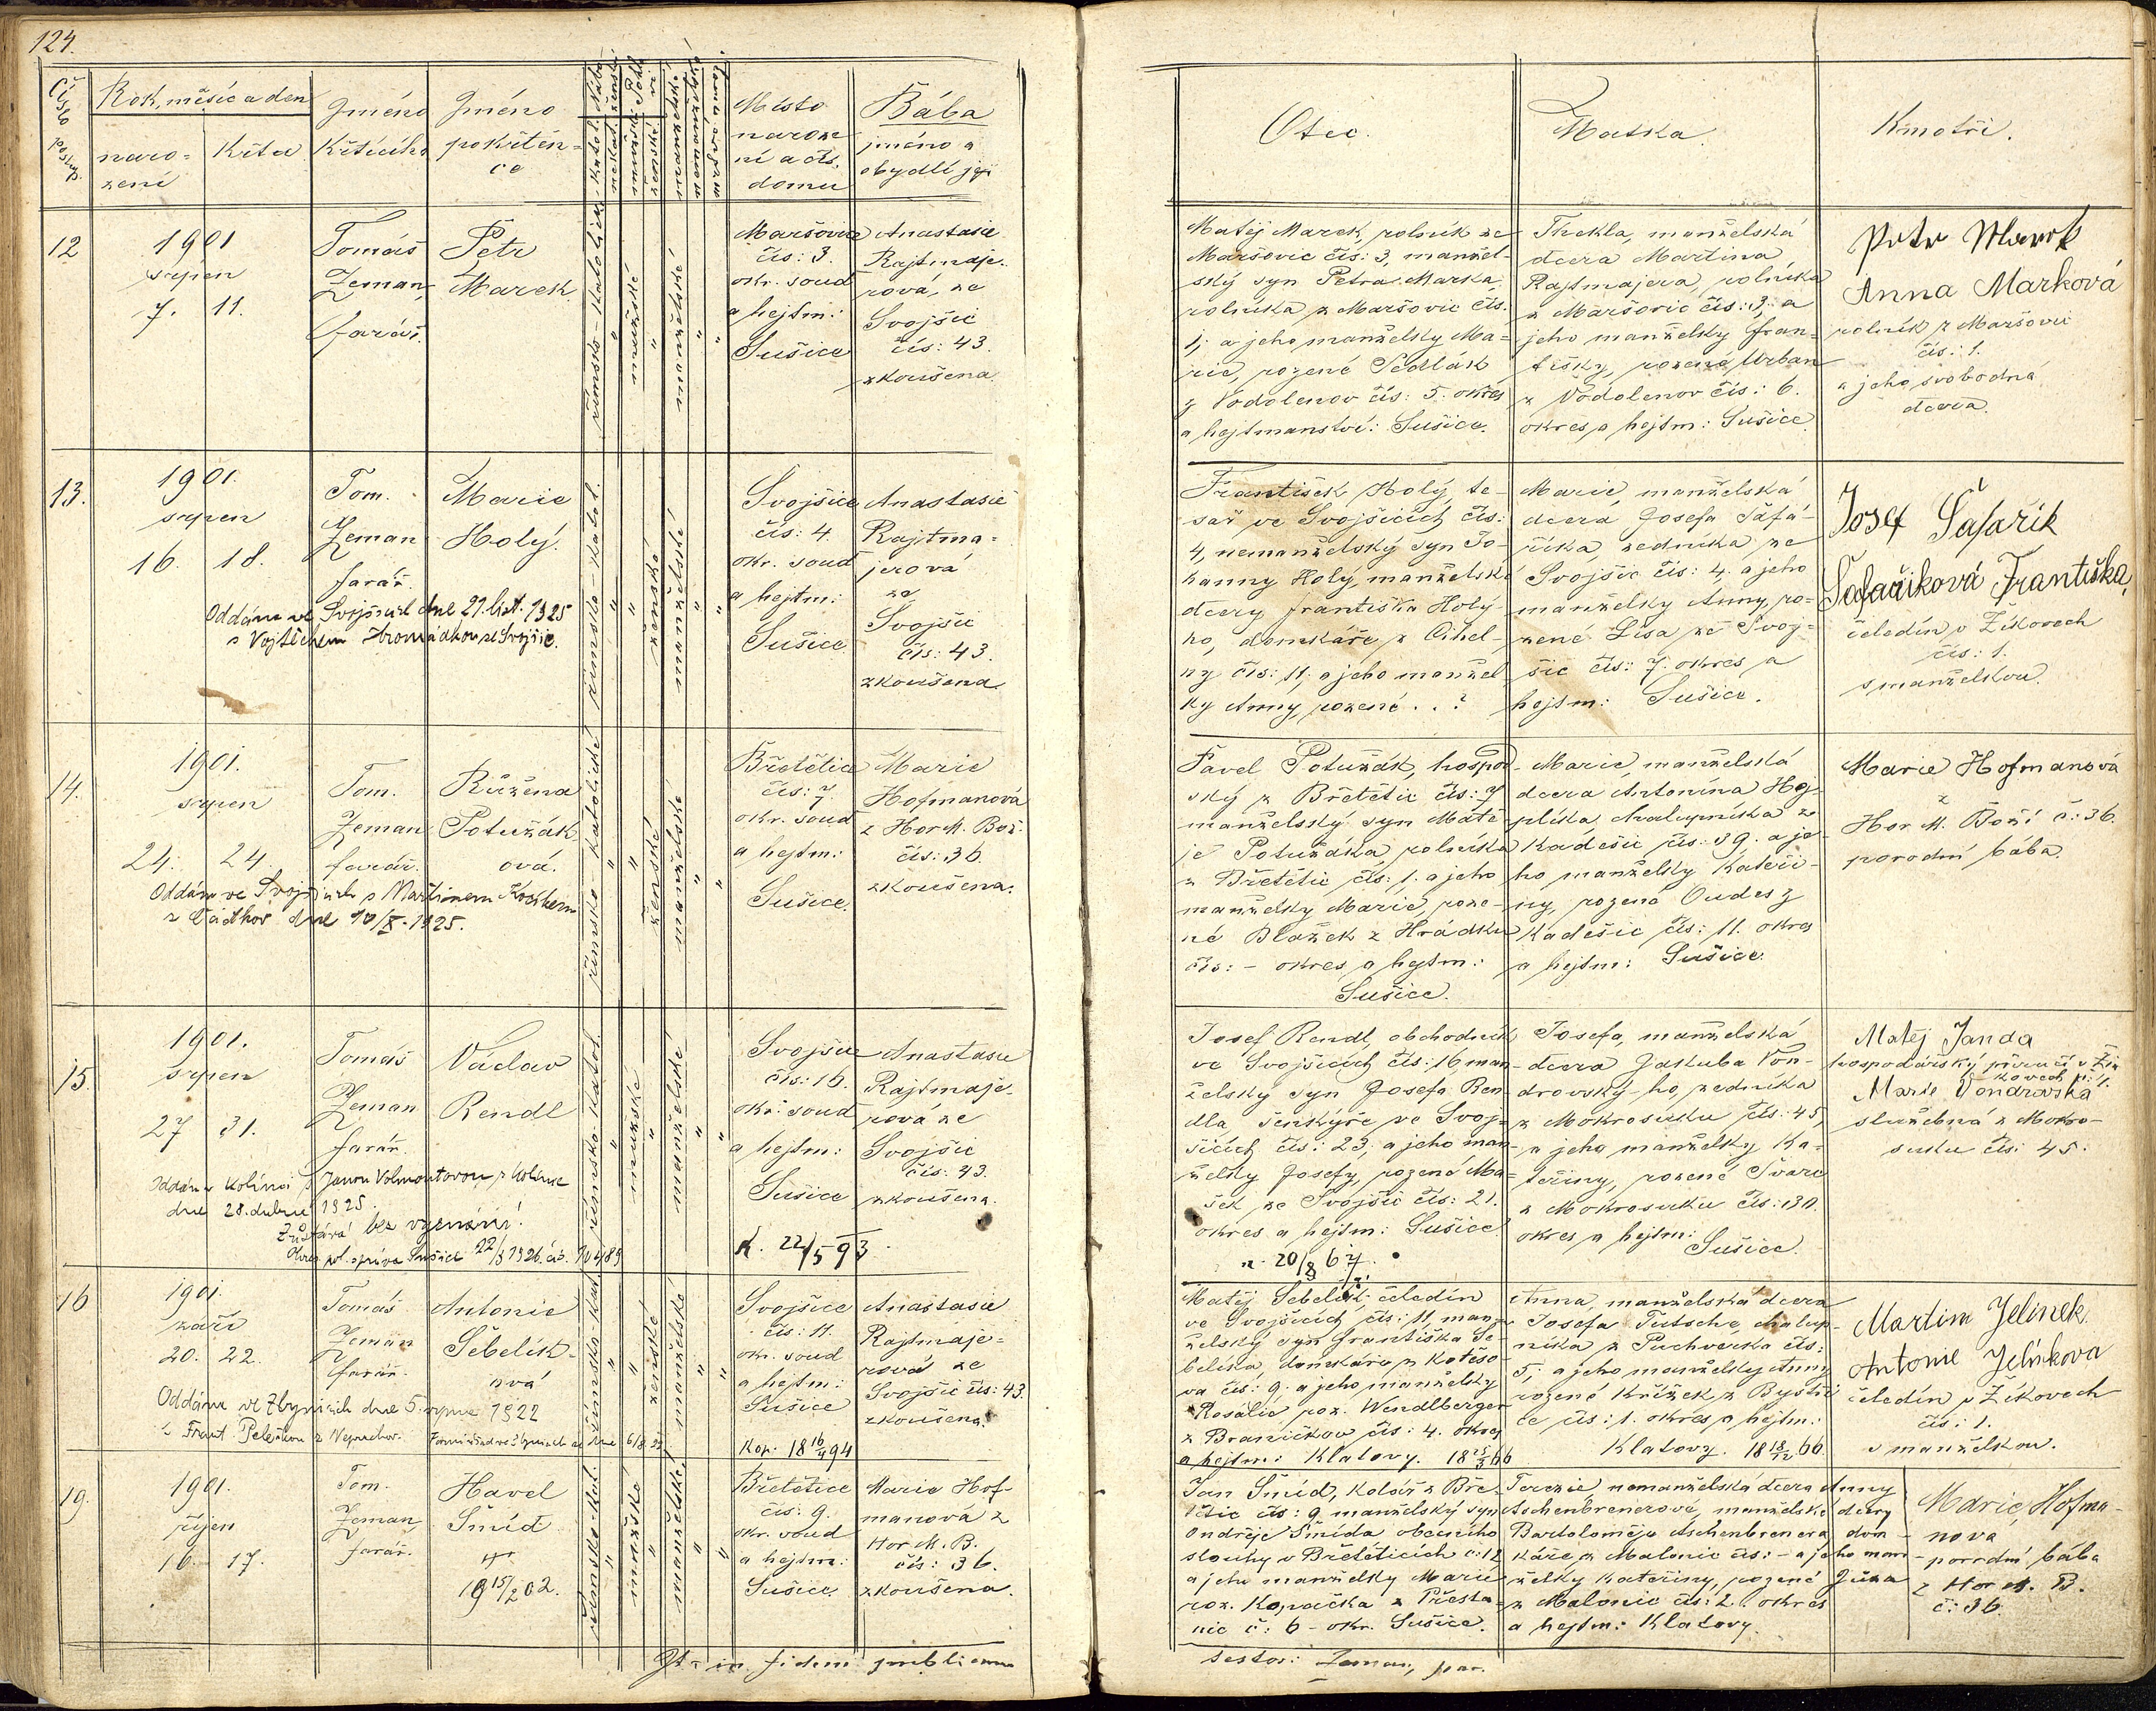 124.
Číslo posloup.
Rok, měsíc a den
naro-
zení
Křtu
Jméno
Křtícího
Jméno
pokřtěn-
ce
Místo
naroze
ní a čís.
domu
Bába
jméno a
obydlí její
Otec.
Matka.
Kmotři.
12
1901
srpen
7. 11.
Tomáš
Zeman,
farář.
Petr
Marek.
římsko-katolické
mužské
manželské
Maršovice
čís: 3.
okr. soud
a hejtm:
Sušice
Anastasie
Rajtmaje-
rová, ze
Svojšic
čís: 43.
zkoušena.
Matěj Marek, rolník ze
Maršovic čís: 3, manžel-
ský syn Petra Marka,
rolníka z Maršovic čís.
1; a jeho manželky Ma-
rie, rozené Sedlák
z Vodolenov čís: 5. okres
a hejtmanství: Sušice.
Thekla, manželská
dcera Martina
Rajtmajera, rolníka
z Maršovic čís: 3; a
jeho manželky Fran-
tišky, rozené Urban
z Vodolenov čís: 6.
okres a hejtm: Sušice.
Petr Marek
Anna Marková
rolník z Maršovic
čís: 1.
a jeho svobodná
dcera.
13.
1901.
srpen
16. 18.
Tom.
Zeman
farář.
Marie
Holý.
Oddána ve Svojšicích dne 21. list. 1925
s Vojtěchem Hromádkou ze Svojšic.
římsko-katol.
ženské
manželské
Svojšice
čís: 4.
okr. soud
a hejtm:
Sušice.
Anastasie
Rajtma-
jerová
ze
Svojšic
čís: 43.
zkoušena
František Holý, te-
sař ve Svojšicích čís:
4, nemanželský syn Jo-
hanny Holý, manželské
dcery Františka Holý-
ho, domkáře z Cihel-
ny čís: 11; a jeho manžel
ky Anny, rozené . . ?
Marie, manželská
dcera Josefa Šafa-
říka, zedníka ze
Svojšic čís: 4; a jeho
manželky Anny, ro-
zené Lisa ze Svoj-
šic čís: 7. okres a
hejtm: Sušice.
Josef Šafařík
Šafaříková Františka,
čeledín v Žíkovech
čís: 1.
s manželkou.
14.
1901.
srpen
24. 24.
Tom.
Zeman
farář.
Růžena
Potužák
ová.
Oddána ve Svojšicích s Martinem
dne 10/X. 1925.
římsko-katolické
ženské
manželské
Břetětice
čís: 7.
okr. soud
a hejtm:
Sušice.
Marie
Hofmanová
z Hor M. Bož.
čís: 36.
zkoušena.
Pavel Potužák, hospod-
ský z Břetětic čís: 7
manželský syn Matě-
je Potužáka, rolníka
z Břetětic čís: 1. a jeho
manželky Marie, roze-
né Blažek z Hrádku
čís: - okres a hejtm:
Sušice.
Marie, manželská
dcera Antonína Hej-
plíka, chalupníka z
Kadešic čís: 39. a je-
ho manželky Kateři-
ny, rozené Oudes z
Kadešic čís: 11. okres
a hejtm: Sušice.
Marie Hofmanová
z
Hor M. Boží č: 36.
porodní bába.
15.
1901.
srpen
27 31.
Tomáš
Zeman
farář.
Václav
Rendl
Oddán v Kolínci s Janou Volmontovou z Kolince
dne 28. dubna 1925.
Zůstává bez vyznání!
Okres. pol. správa Sušice 22/3 1926. čís.
římsko-katol.
mužské
manželské
Svojšice
čís: 16.
okr. soud
a hejtm:
Sušice
k. 22/5 93.
Anastasie
Rajtmaje-
rová ze
Svojšic
čís: 43.
zkoušena.
Josef Rendl, obchodník
ve Svojšicích čís: 16 man-
želský syn Josefa Ren
dla šenkýře ve Svoj-
šicích čís: 23; a jeho man-
želky Josefy, rozené Ma-
šek ze Svojšic čís: 21.
okres a hejtm: Sušice
n. 20/8 67.
Josefa, manželská
dcera Jakuba Von-
drovský-ho, zedníka
z Mokrosuku čís: 45,
a jeho manželky Ka-
teřiny, rozené Švarc
z Mokrosuku čís: 30.
okres a hejtm:
Sušice.
Matěj Janda
hospodářský příručí v Ží-
kovech č: 1.
Marie Vondrovská
služebná z Mokro-
suku čís: 45.
16
1901
září
20. 22.
Tomáš
Zeman
farář.
Antonie
Šebelík-
ová
Oddána ve Zbynicích dne 5. srpna 1922
s Frant. Peleškou z Neprochov.
římsko-kat.
ženské
manželské
Svojšice
čís: 11.
okr. soud
a hejtm:
Sušice
Kop. 18 16/4 94
Anastasie
Rajtmaje-
rová ze
Svojšic čís: 43.
zkoušena.
Matěj Šebelík, čeledín
ve Svojšicích čís: 11, man-
želský syn Františka Še-
belíka, domkáře z Kotěšo-
va čís: 9. a jeho manželky
Rosalie roz. Wendlberger
z Braníčkov čís: 4. okres
a hejtm: Klatovy. 18 25/3 66
Anna, manželská dcera
Josefa Tutsche, chalup-
níka z Puchverka čís:
5, a jeho manželky Anny
rozené Křížek z Bystři-
ce čís: 1. okres a hejtm:
Klatovy. 18 18/12 66.
Martin Jelínek.
Antonie Jelínkova
čeledín v Žíkovech
čís: 1.
s manželkou.
19.
1901.
říjen
16. 17.
Tom.
Zeman,
farář.
Havel
Šmíd
19 15/2 02.
římsko-kat.
mužské
manželské
Břetětice
čís: 9.
okr. soud
a hejtm:
Sušice
Marie Hof-
manová z
Hor M. B.
čís: 36.
zkoušena.
Jan Šmíd, kolář z Bře-
tětic čís: 9 manželský syn
Ondřeje Šmída obecního
slouhy v Břetěticích č: 12
a jeho manželky Marie
roz. Kopačka z Přesta-
nic č: 6 - okr. Sušice.
Terezie nemanželská dcera Anny
Aschenbrenerové, manželské dcery
Bartoloměje Aschenbrenera, dom-
káře z Malonic čís: - a jeho man-
želky Kateřiny, rozené Zůza
z Malonic čís: 2. okres
a hejtm: Klatovy.
Marie Hofma-
nova
porodní bába
z Hor M. B.
č: 36.
in fidem publicam
testor: Zeman, par.